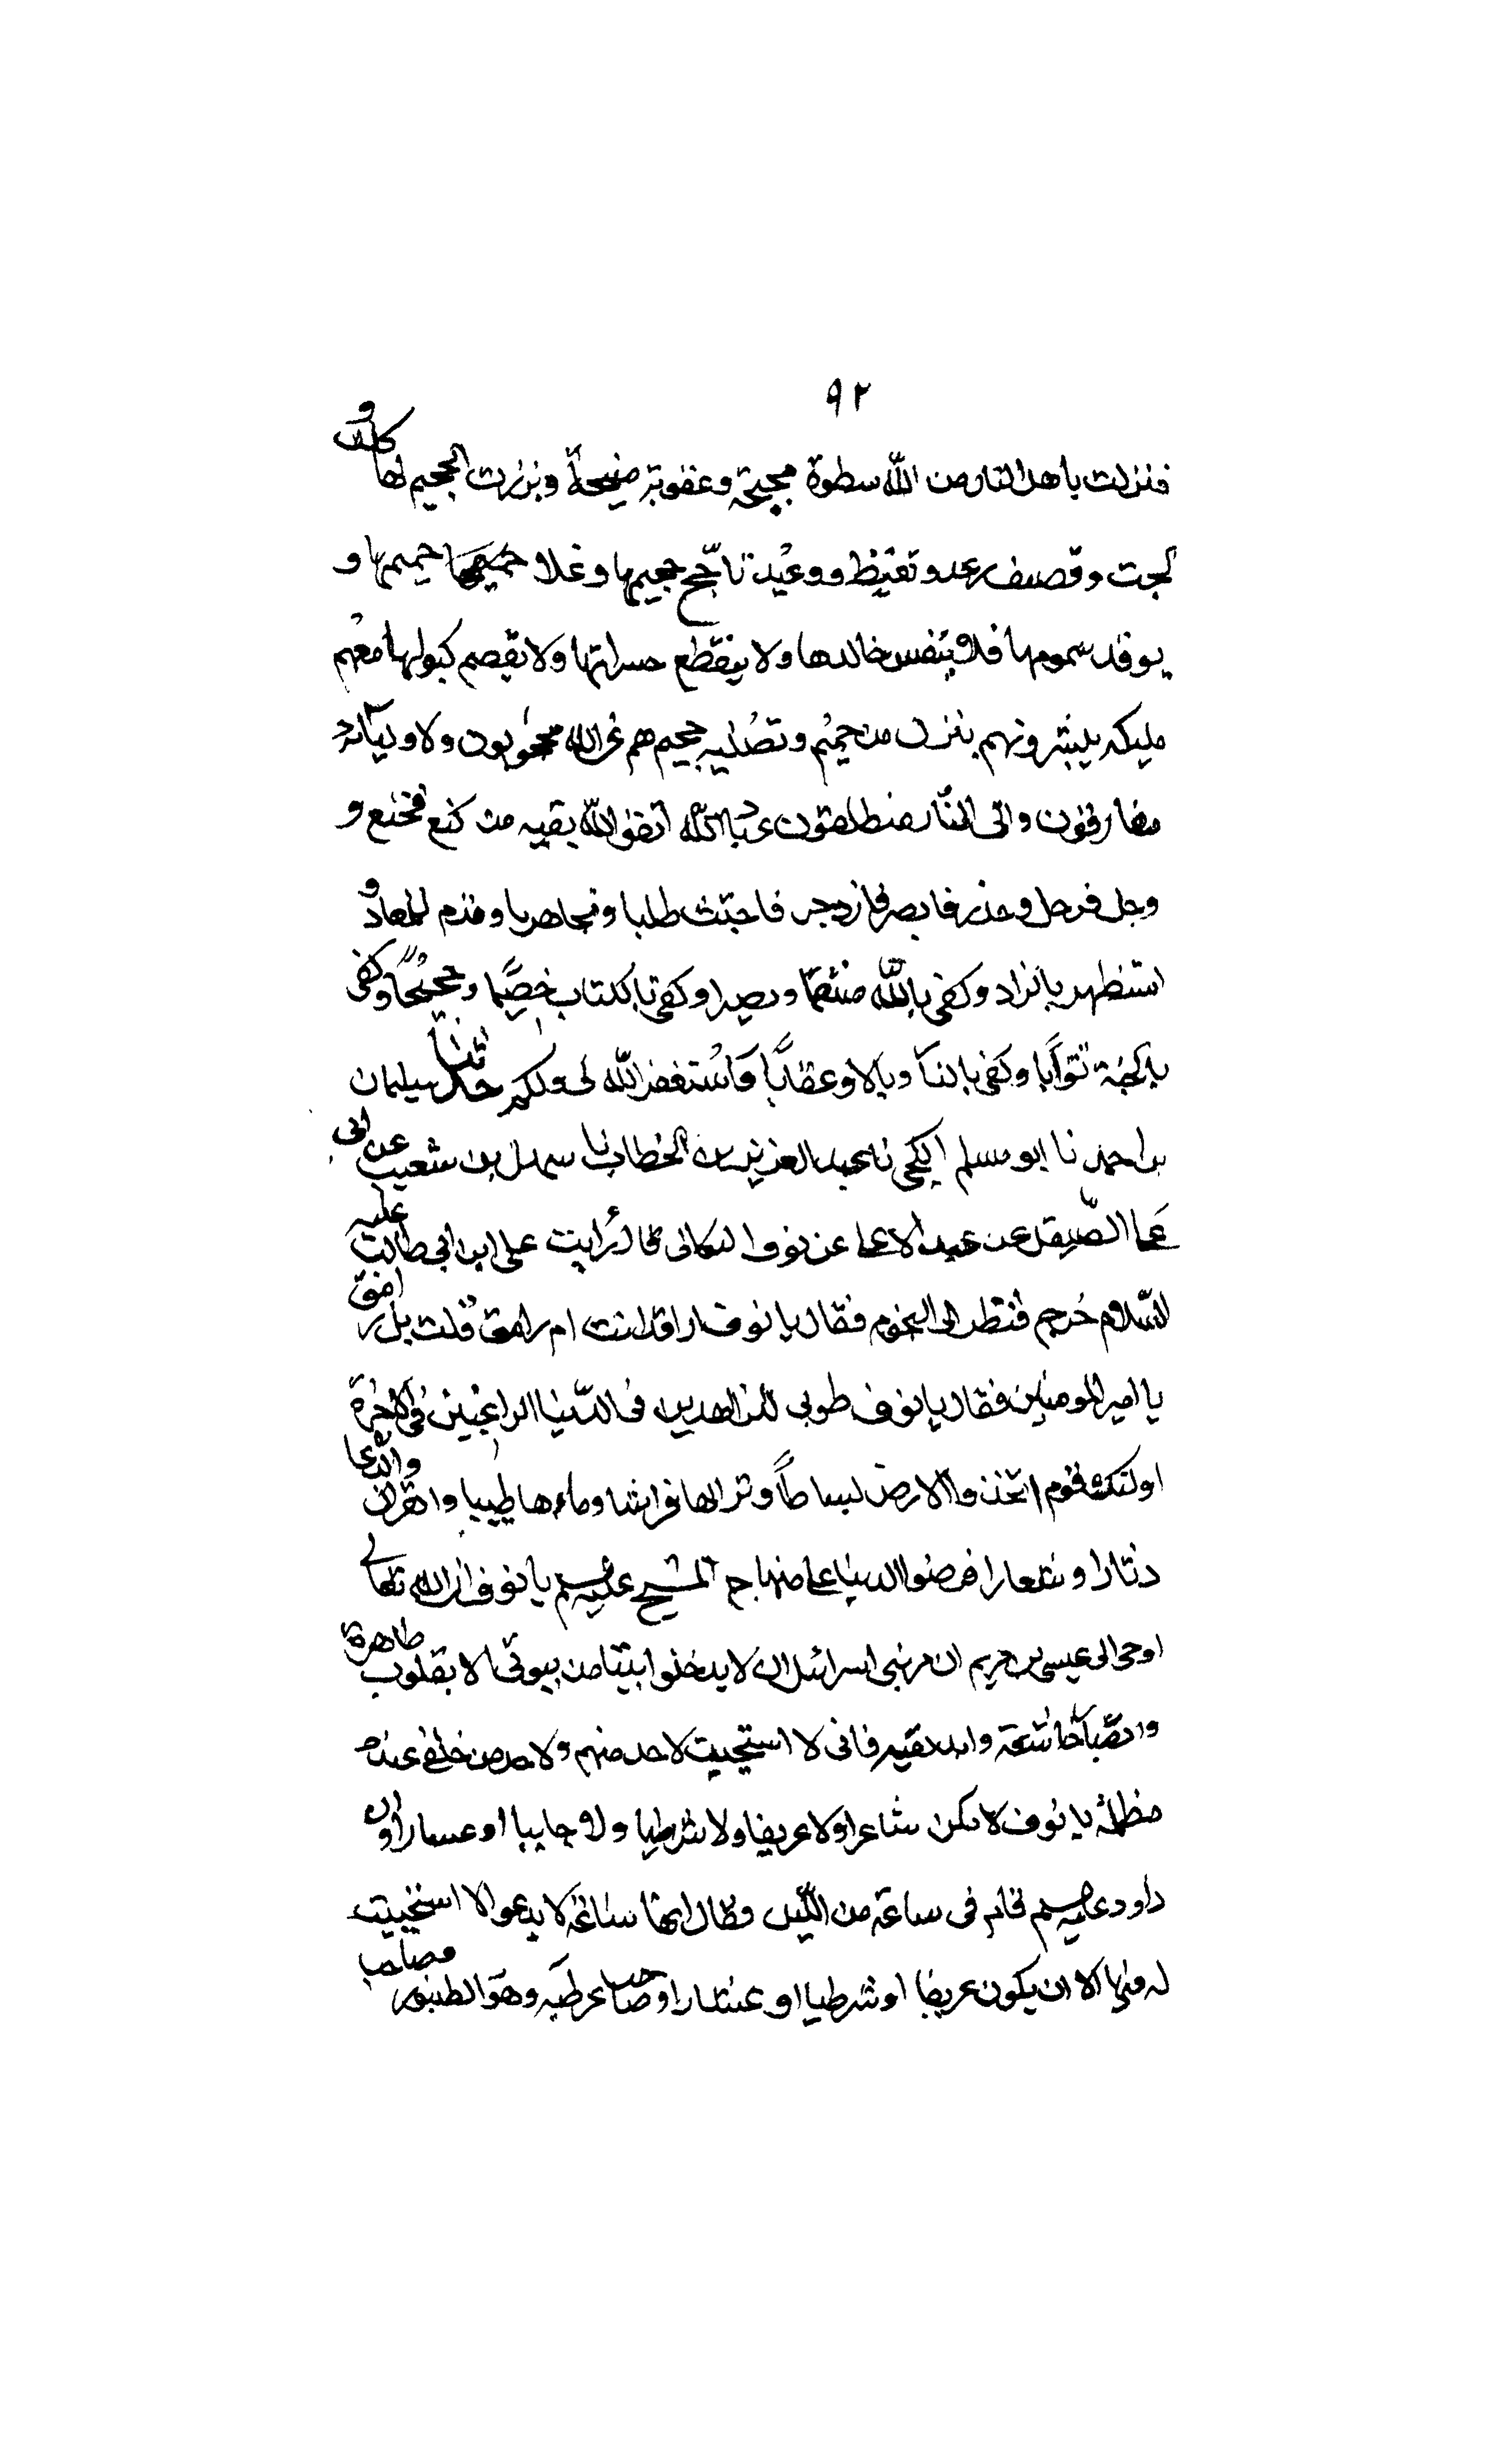 ٩٢
فنزلت باهل النار من الله سطوة مجيحة وعقوبة منيحة وبرزت الجحيم لها كلب و
لجب وقصيف رعد وتغيظ ووعيد تاجج جحيمها وغلا حميمها و
يوقد سمومها فلا يتنفس خالدها ولا ينقطع حسراتها ولا يقصم كبولها معهم
مليكة يبشرونهم بنزل من حميم وتصلية جحيم هم عن الله محجوبون ولاوليائه
مفارقون والى النار منطلقون عباد الله اتقوا الله بقية من كنع فخنع و
وجل فرحل وحذر فابصر فازدجر فاحتث طلبا ونجا هربا وقدم للمعاد و
استظهر بالزاد وكفى بالله منتقما وبصيرا وكفى بالكتاب خصيما وحجيجا وكفى
بالجنة ثوابا وكفى بالنار وبالا وعقابا واستغفر الله لى ولكم حدثنا سليمان
بن احمد نا ابو مسلم الكجى نا عبد العزيز بن الخطاب نا سهل بن شعيب عن ابى
على الصيقل عن عبد الاعلى عن نوف البكالى قال رايت على ابن ابى طالب عليه
السلام خرج فنظر الى النجوم فقال يا نوف اراقد انت ام رامق قلت بل رامق
يا امير المومنين فقال يا نوف طوبى للزاهدين فى الدنيا الراغبين فى الاخرة
اولئك قوم اتخذوا الارض بساطا وترابها فراشا وماءها طيبا والقران والدعا
دثارا وشعارا قرضوا الدنيا على منهاج المسيح عليه السلم يا نوف ان الله تعالى
اوحى الى عيسى بن مريم ان مر بنى اسرائيل ان لا يدخلوا بيتا من بيوتى الا بقلوب طاهرة
وابصار خاشعة وايد نقية فانى لا استجيب لاحد منهم ولاحد من خلقى عنده
مظلمة يا نوف لا تكن شاعرا ولا عريفا ولا شرطيا ولا جابيا او عسارا وان
داود عليه السلم قام فى ساعة من الليل فقال انها ساعة لا يدعو الا استجيبت
له فيها الا ان يكون عريفا او شرطيا او عشارا او صاحب عرطبه وهو الطنبور وصاحب